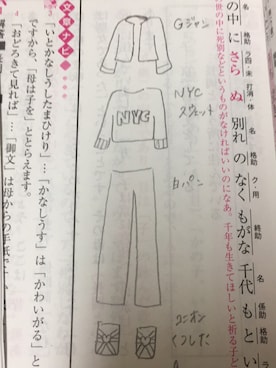 の中に さら ぬ 別れ の なく もがな 千代 も とい
名
格助
ラ四・未
打消・体
名
格助
ク・用
終助
名
係助
格助
世の中に死別などというものがなければいいのになあ。千年も生きてほしいと祈る子ど
Gジャン
NYC
スウェット
NYC
白パン
ユニオン
くつした
文章ナビ
「いとかなしうしたまひけり」…「かなしうす」は「かわいがる」と
ですから、「母は子を」ととらえます。
「おどろきて見れば」…「御文」は母からの手紙で